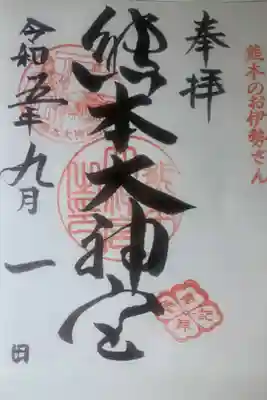 熊本のお伊勢さん
奉拝
熊本大神宮
令和五年九月一日